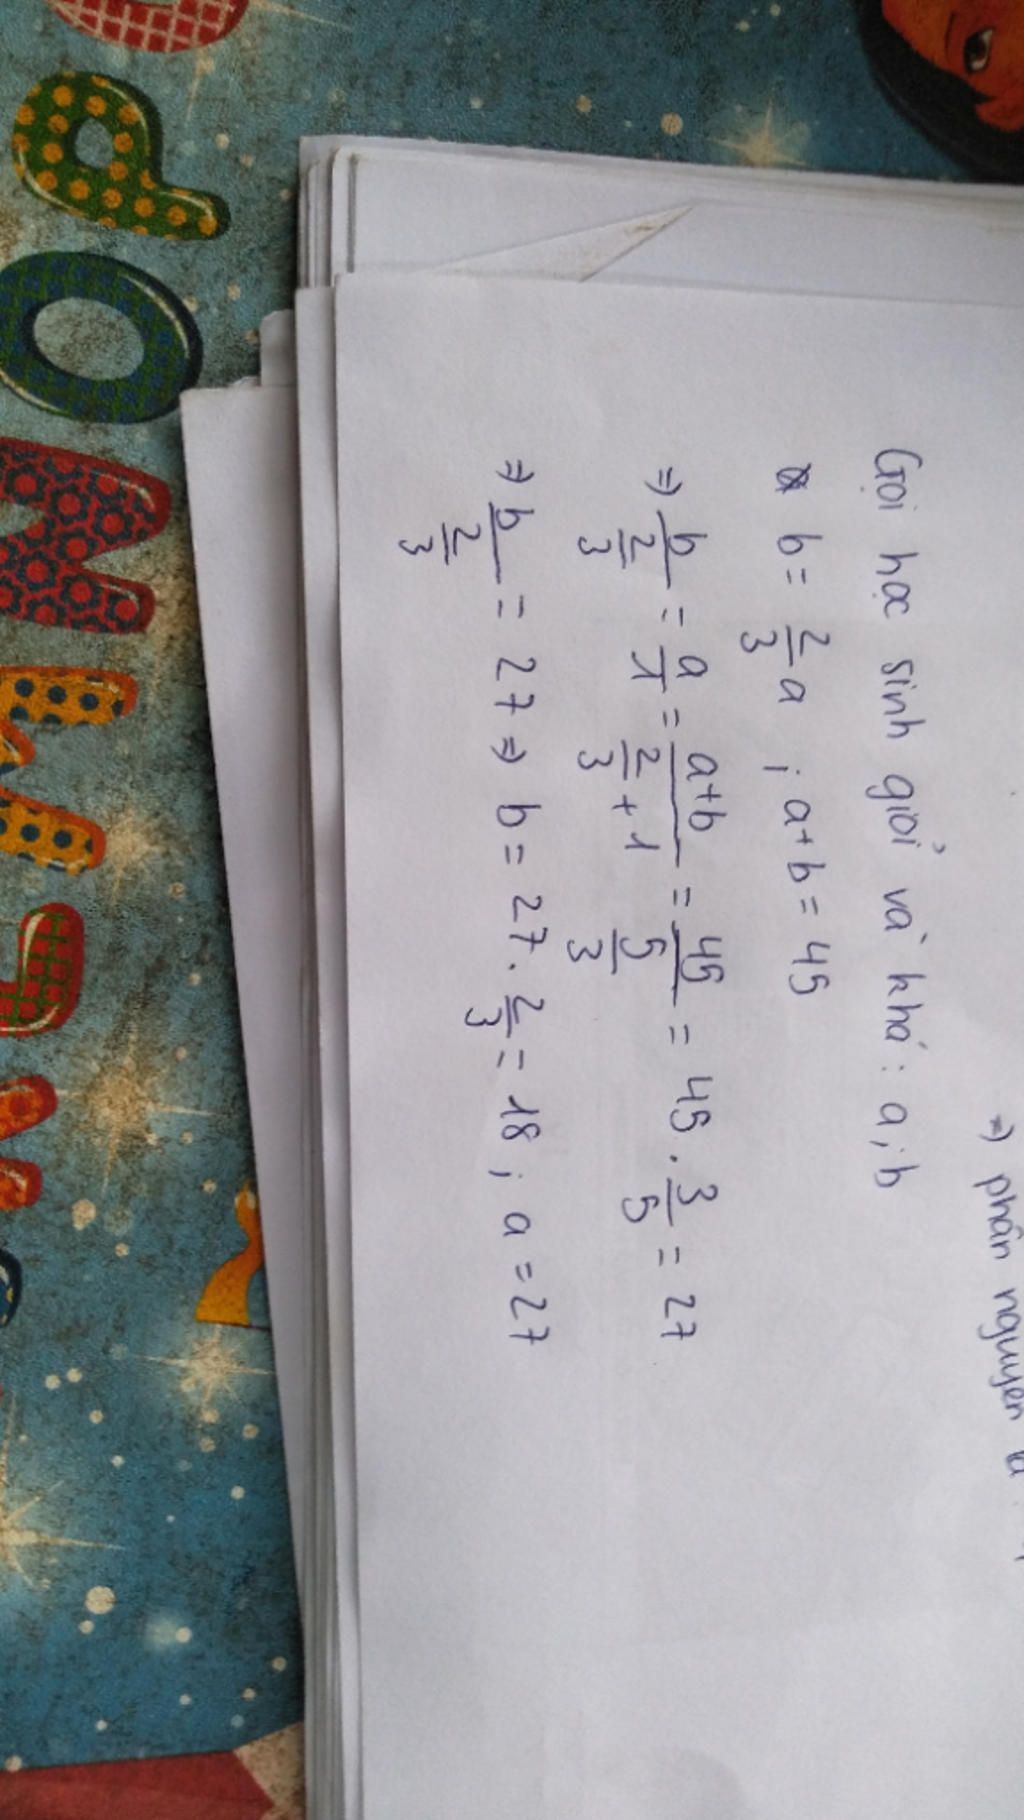 ⇒ phần nguyên
Gọi học sinh giỏi và khá: a; b
b = 2/3 a ; a+b = 45
⇒ b/(2/3) = a/1 = (a+b)/(2/3 + 1) = 45/(5/3) = 45 . 3/5 = 27
⇒ b/(2/3) = 27 ⇒ b = 27 . 2/3 = 18 ; a = 27